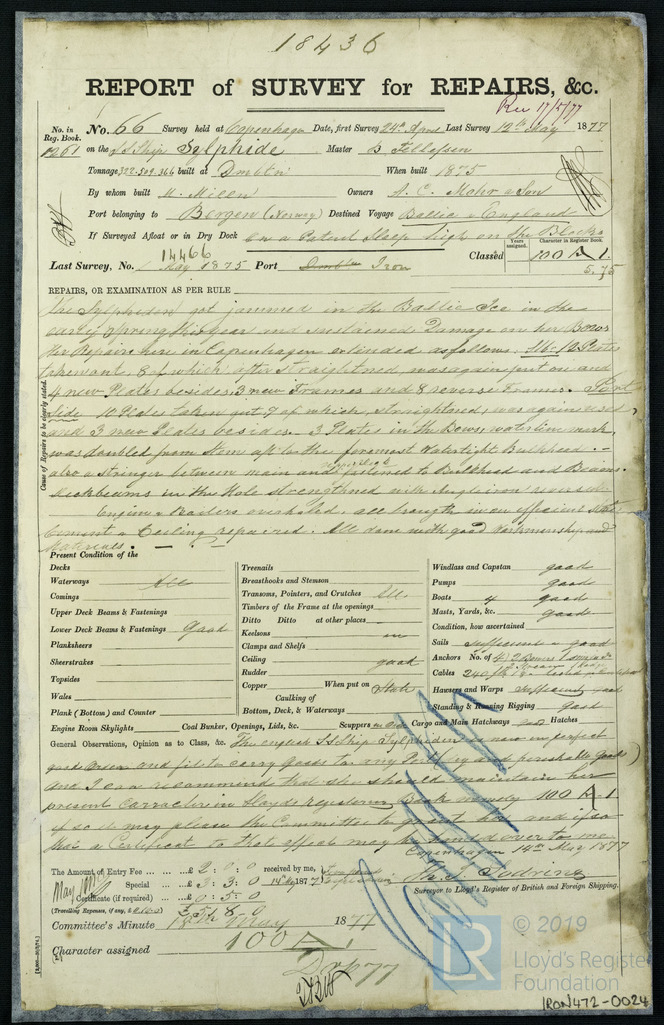 18436
REPORT of SURVEY for REPAIRS, &c.
Rec 17/5/77
No. in Reg. Book. No. 66 Survey held at Copenhagen Date, first Survey 24th April Last Survey 12th May 1877
1261 on the S.S. Ship Sylphide Master
Tonnage 322.509.366 built at Dublin When built 1875
By whom built Owners A. C. Mohr & Son
Port belonging to Bergen (Norway) Destined Voyage Baltic & England
If Surveyed Afloat or in Dry Dock on a Patent Sleep high on the Blocks
14466
Last Survey, No. May 1875 Port Iron Classed Years assigned. Character in Register Book. 100 A 1.
5.75
REPAIRS, OR EXAMINATION AS PER RULE
Cause of Repairs to be clearly stated.
The Sylphiden got jammed in the Baltic Ice in the
early Spring this year and sustained Damage on her Bows
Her Repairs here in Copenhagen extended as follows. 12 Plates
8 of which after straightened, was again put on and
4 new Plates besides, 3 new Frames and 8 reverse Frames. Port
side 10 Plates taken out 7 of which, straightened, was again used
and 3 new Plates besides. 3 Plates in the Bows, waterline mark
was doubled from Stem up to the foremost Watertight Bulkhead.
also a Stringer between main and fastened to Bulkhead and Beams.
Deckbeams in the Hole strengthened with Angleiron
Engine & Boilers overhaled, all brought in an efficient state
Cement & Ceiling repaired. All done with good Workmanship and
Materials.
Present Condition of the
Decks
Waterways All
Comings
Upper Deck Beams & Fastenings
Lower Deck Beams & Fastenings Good
Planksheers
Sheerstrakes
Topsides
Wales
Plank (Bottom) and Counter
Engine Room Skylights
Treenails
Breasthooks and Stemson
Transoms, Pointers, and Crutches All
Timbers of the Frame at the openings
Ditto Ditto at other places
Keelsons
Clamps and Shelfs
Ceiling good
Rudder
Copper When put on State
Caulking of
Bottom, Deck, & Waterways
Windlass and Capstan good
Pumps good
Boats 4 good
Masts, Yards, &c. good
Condition, how ascertained
Sails sufficient & good
Anchors No. of 4, 2 Bowers
Cables 240 fth
Hawsers and Warps sufficient good
Standing & Running Rigging good
Coal Bunker, Openings, Lids, &c. Scuppers Cargo and Main Hatchways Hatches
General Observations, Opinion as to Class, &c. The english S.S. Ship Sylphiden is now in perfect
good order and fit to carry goods to any Port (dry and perishable goods)
and I can recommend that she should maintain her
present carracter in Lloyds register Book namely 100 A 1
if so it may please the Committee to grant her and if so
that a Certificate to that effect may be hand over to me
Copenhagen 14th May 1877
The Amount of Entry Fee £ 2 : 0 : 0 received by me,
Special £ 3 : 3. 0 14 May 1877
Certificate (if required) £ 0 : 5 : 0
(Travelling Expenses, if any, £
£ 5 : 8 : 0
Surveyor to Lloyd's Register of British and Foreign Shipping.
Committee's Minute 18th May 1877
Character assigned 100 A 1
© 2019
LR
Lloyd's Register
Foundation
IRON472-0024